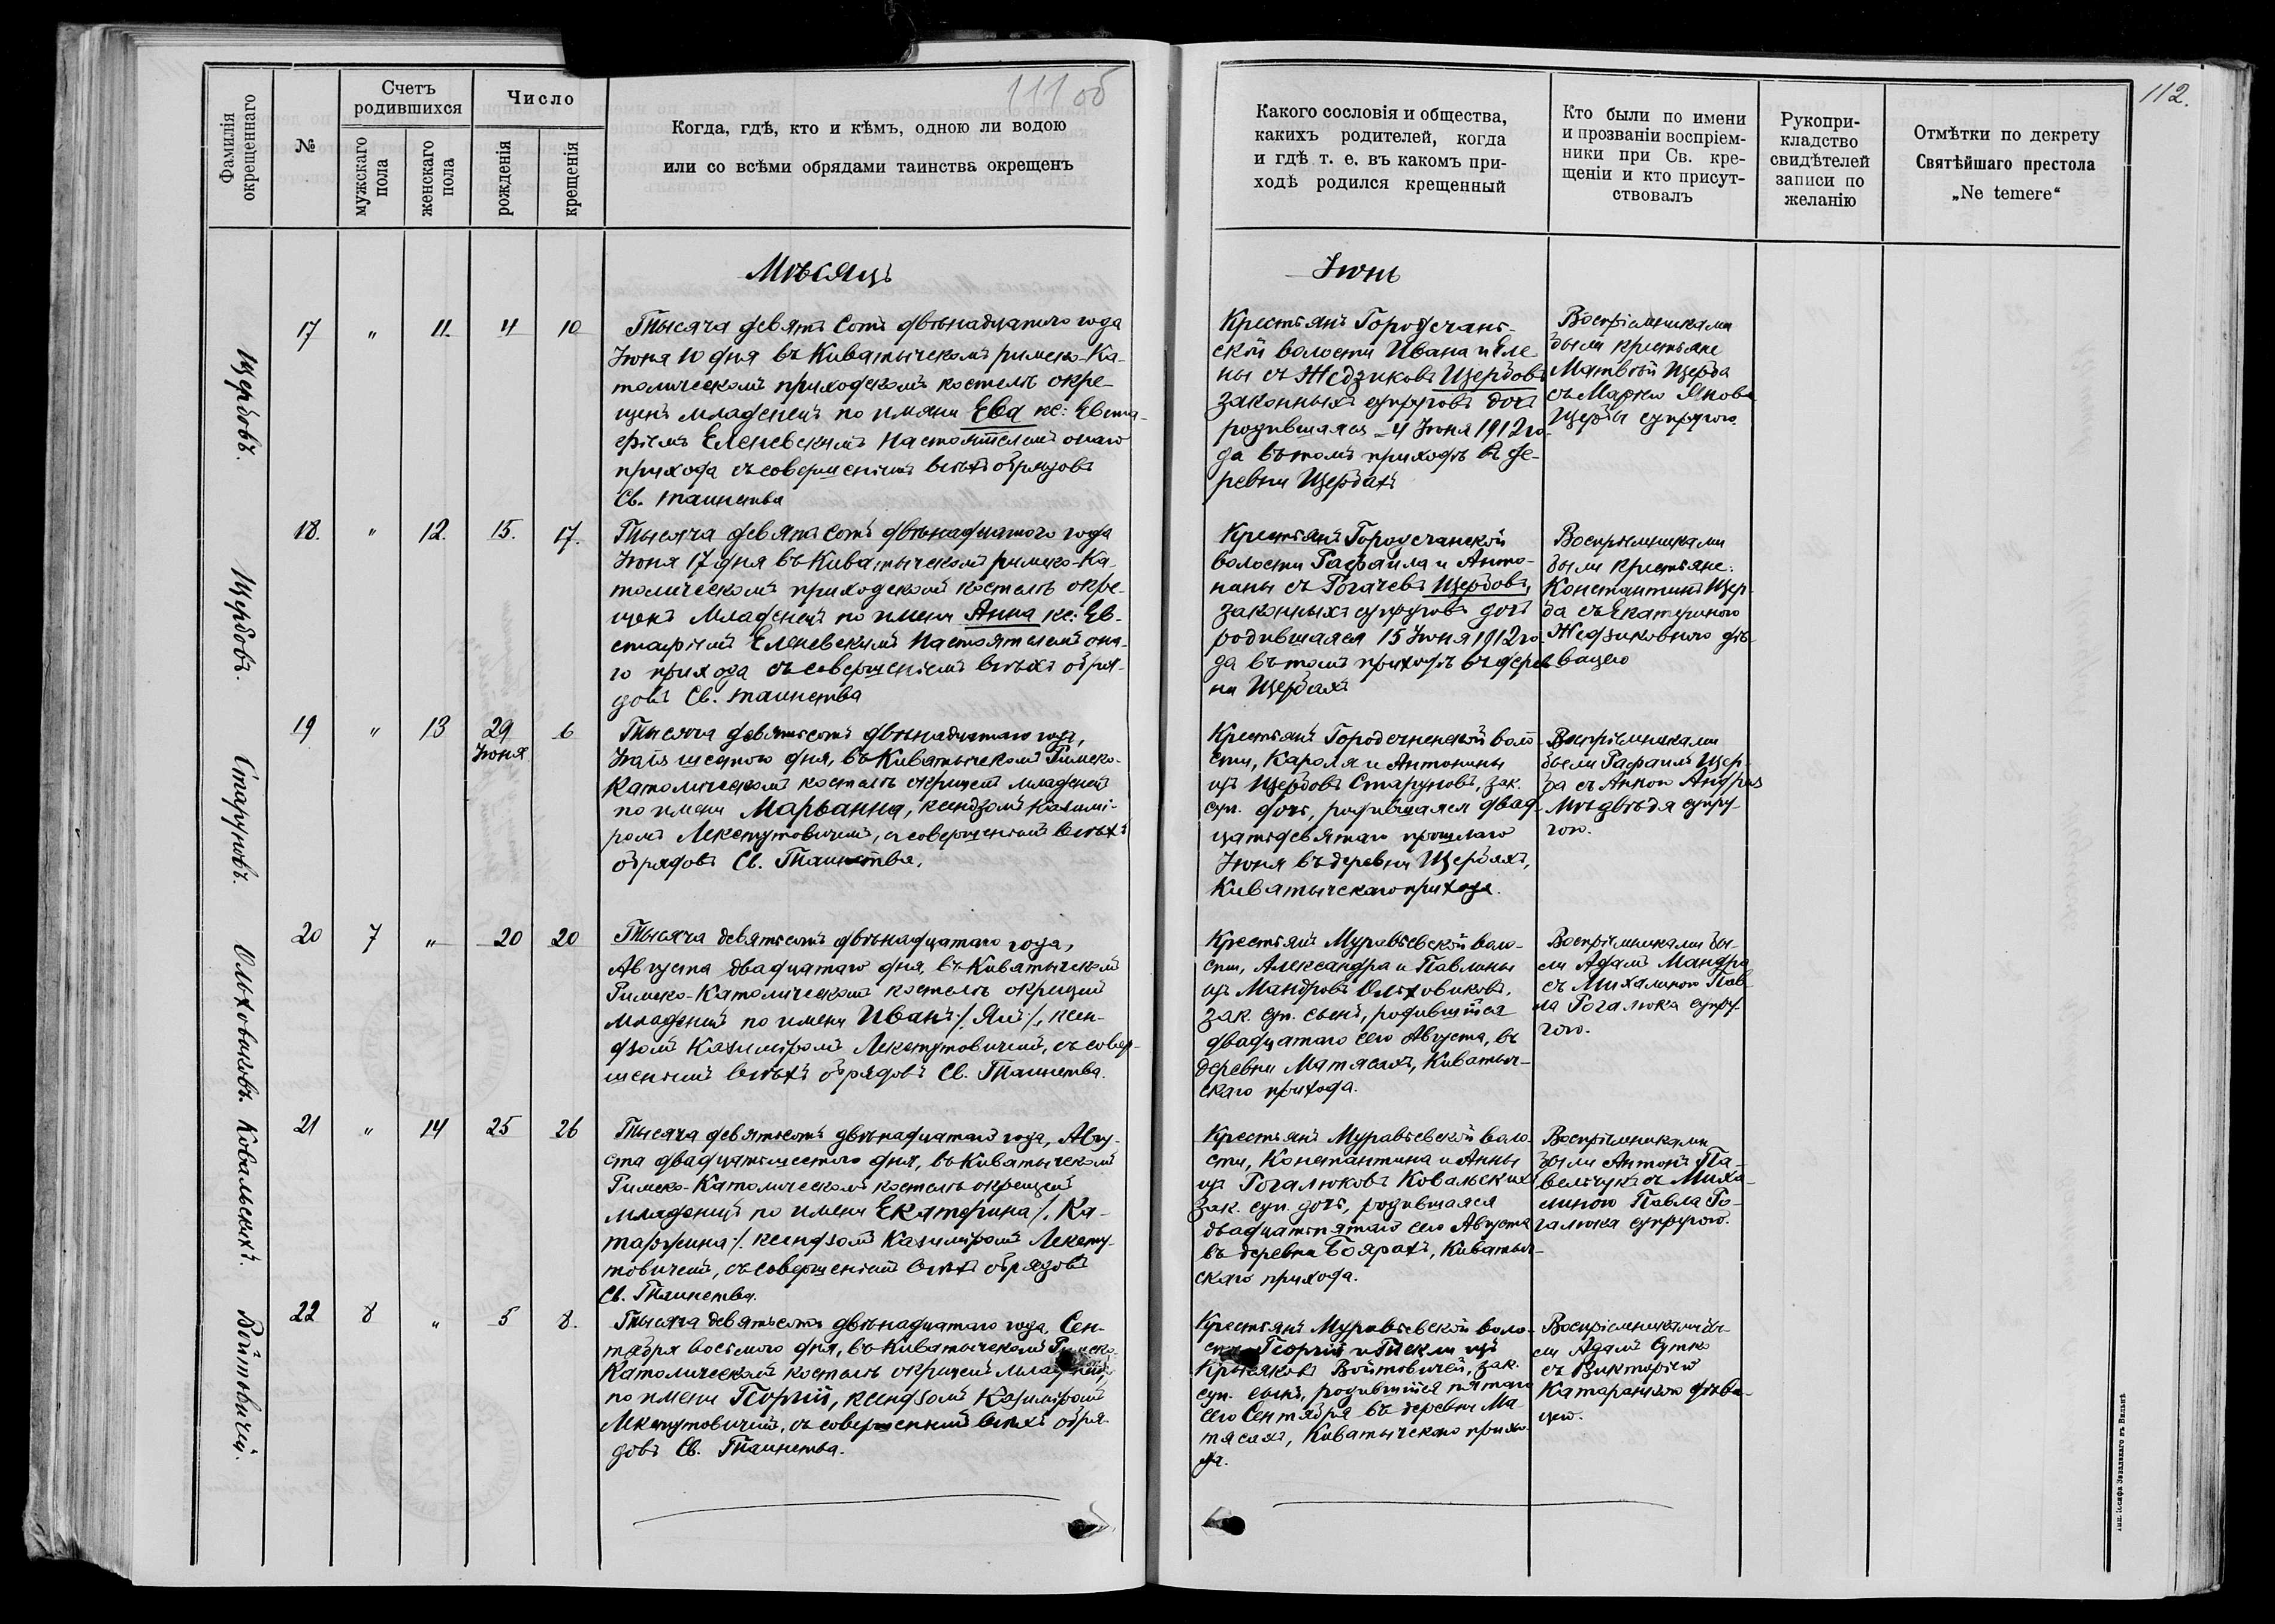 111 об
112.
Фамилія окрещеннаго
№
Счетъ родившихся
мужскаго пола
женскаго пола
Число
рожденія
крещенія
Когда, гдѣ, кто и кѣмъ, одною ли водою
или со всѣми обрядами таинства окрещенъ
Какого сословія и общества,
какихъ родителей, когда
и гдѣ т. е. въ какомъ при-
ходѣ родился крещенный
Кто были по имени
и прозваніи воспріем-
ники при Св. кре-
щеніи и кто присут-
ствовалъ
Рукопри-
кладство
свидѣтелей
записи по
желанію
Отмѣтки по декрету
Святѣйшаго престола
„Ne temere“
Мѣсяцъ
Іюнь
Щербовъ.
17 " 11. 4 10
Тысяча девять сотъ двѣнадцатого года
Іюня 10 дня въ Киватычскомъ римско-Ка-
толическомъ приходскомъ костелѣ окре-
щенъ младенецъ по имяни Ева кс: Евста-
фіемъ Еленевскимъ Настоятелемъ онаго
прихода съ совершеніемъ всѣхъ обрядовъ
Св. таинства
Крестьянъ Городечанс-
ской волости Ивана и Еле-
ны съ Жедзиковъ Щербовъ
законныхъ супруговъ дочь
родившаяся 4 Іюня 1912 го-
да въ томъ приходѣ въ де-
ревни Щербахъ
Воспріемниками
были крестьяне
Матвѣй Щерба
съ Маріею Якова
Щербы супругою
Щербовъ.
18. " 12. 15. 17.
Тысяча девять сотъ двѣнадцатого года
Іюня 17 дня въ Киватычскомъ римско-Ка-
толическомъ приходскомъ костелѣ окре-
щенъ Младенецъ по имени Анна кс: Ев-
стафіемъ Еленевскимъ Настоятелемъ она-
го прихода съ совершеніемъ всѣхъ обря-
довъ Св. таинства
Крестьянъ Городечанской
волости Рафаила и Анто-
нины съ Рогачевъ Щербовъ,
законныхъ супруговъ дочь
родившаяся 15 Іюня 1912 го-
да въ томъ приходѣ въ дерев-
ни Щербахъ
Воспріемниками
были крестьяне:
Константинъ Щер-
ба съ Екатериною
Жедзиковною дѣ-
вицею
Старуновъ.
19 " 13 29 Іюня 6
Тысяча девятьсотъ двѣнадцатаго года,
Іюля шестого дня, въ Киватычскомъ Римско-
Католическомъ костелѣ окрещенъ младенецъ
по имени Марьанна, ксендзомъ Казимі-
ромъ Лекстутовичемъ, съ совершеніемъ всѣхъ
обрядовъ Св. Таинства.
Крестьянъ Городечненской воло-
сти, Кароля и Антонины
изъ Щербовъ Старуновъ, зак.
суп. дочь, родившаяся двад-
цатьдевятаго прошлаго
Іюня въ деревни Щербахъ,
Киватычскаго прихода.
Воспріемниками
были Рафаилъ Щер-
ба съ Анною Андрея
Мѣдвѣдя супру-
гою.
Ольховиковъ.
20 7 " 20 20
Тысяча девятьсотъ двѣнадцатаго года,
Августа двадцатаго дня, въ Киватычскомъ
Римско-Католическомъ костелѣ окрещенъ
младенецъ по имени Иванъ /:Янъ:/, ксен-
дзомъ Казиміромъ Лекстутовичемъ, съ совер-
шеніемъ всѣхъ обрядовъ Св. Таинства.
Крестьянъ Муравьевской воло-
сти, Александра и Павлины
изъ Мандровъ Ольховиковъ,
зак. суп. сынъ, родившійся
двадцатаго сего Августа, въ
деревни Матясахъ, Киватыч-
скаго прихода.
Воспріемниками бы-
ли Адамъ Мандра
съ Михалиною Пав-
ла Рогалюка супру-
гою.
Ковальскихъ.
21 " 14 25 26
Тысяча девятьсотъ двѣнадцатаго года, Авгу-
ста двадцатьшестого дня, въ Киватычскомъ
Римско-Католическомъ костелѣ окрещенъ
младенецъ по имени Екатерина /:Ка-
таржина:/ ксендзомъ Казиміромъ Лексту-
товичемъ, съ совершеніемъ всѣхъ обрядовъ
Св. Таинства.
Крестьянъ Муравьевской воло-
сти, Константина и Анны
изъ Рогалюковъ Ковальскихъ
зак. суп. дочь, родившаяся
двадцатьпятаго сего Августа
въ деревни Боярахъ, Киватыч-
скаго прихода.
Воспріемниками
были Антонъ Па-
вельчукъ съ Миха-
линою Павла Ро-
галюка супругою.
Войтовичей.
22 8 " 5 8.
Тысяча девятьсотъ двѣнадцатаго года, Сен-
тября восьмого дня, въ Киватычскомъ Римско-
Католическомъ костелѣ окрещенъ младенецъ,
по имени Георгій, ксендзомъ Казиміромъ
Лекстутовичемъ, съ совершеніемъ всѣхъ обря-
довъ Св. Таинства.
Крестьянъ Муравьевской воло-
сти Георгія и Теклы изъ
Войтовичей, зак.
суп. сынъ, родившійся пятаго
сего Сентября въ деревни Ма-
тясахъ, Киватычскаго прихо-
да.
Воспріемниками бы-
ли Адамъ Сутко
съ Викторіею
дѣви-
цею.